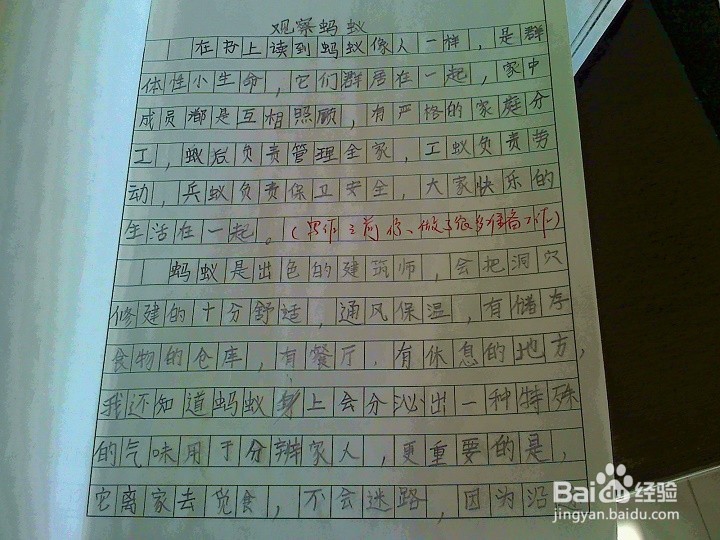 观察蚂蚁
在书上读到蚂蚁像人一样，是群
体性小生命，它们群居在一起，家中
成员都是互相照顾，有严格的家庭分
工，蚁后负责管理全家，工蚁负责劳
动，兵蚁负责保卫安全，大家快乐的
生活在一起。（写作之前你做了很多准备工作）
蚂蚁是出色的建筑师，会把洞穴
修建的十分舒适，通风保温，有储存
食物的仓库，有餐厅，有休息的地方，
我还知道蚂蚁身上会分沁出一种特殊
的气味用于分辨家人，更重要的是，
它离家去觅食，不会迷路，因为沿
Baidu经验
jingyan.baidu.com